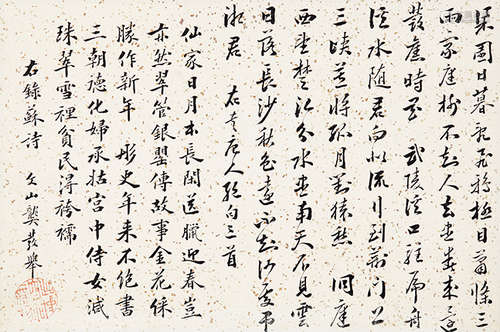 梁園日暮亂飛鴉極目蕭條三
兩家庭樹不知人去盡春來還
發舊時花 武陵溪口駐扁舟
溪水隨君向北流行到荊門上
三峽莫將孤月對猿愁 洞庭
西望楚江分水盡南天不見雲
日落長沙秋色遠不知何處弔
湘君 右唐人絕句三首
仙家日月本長閑送臘迎春豈
亦然翠管銀罌傳故事金花綵
勝作新年 彤史年來不絕書
三朝德化婦承姑宮中侍女減
珠翠雪裡貧民得袴襦
右錄蘇詩 文山龔